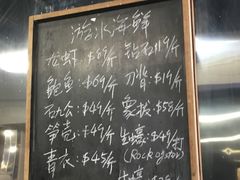 游水海鲜
龙虾:$69/斤 钻石$19/斤
鲍鱼:$69/斤 刀背:$19/斤
石九公:$49/斤 象拔:$58/斤
笋壳:$49/斤 生蠔:$49/打
青衣:$45/斤 (Rock oyster)